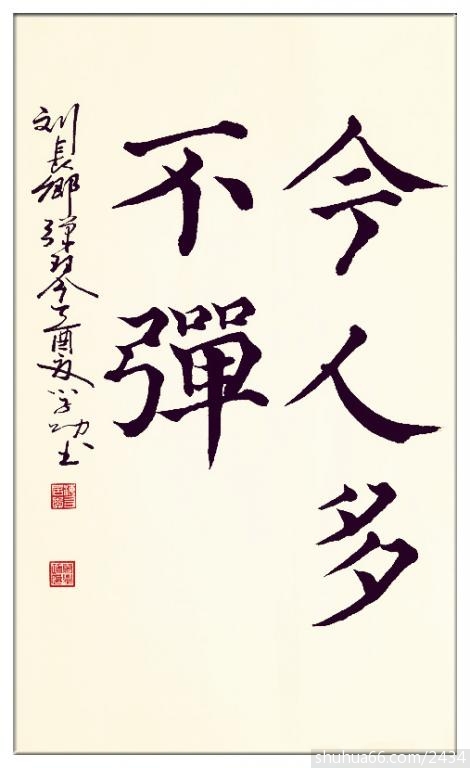 今人多
不彈
刘長卿弹琴丁酉夏学功书
shuhua66.com/2434